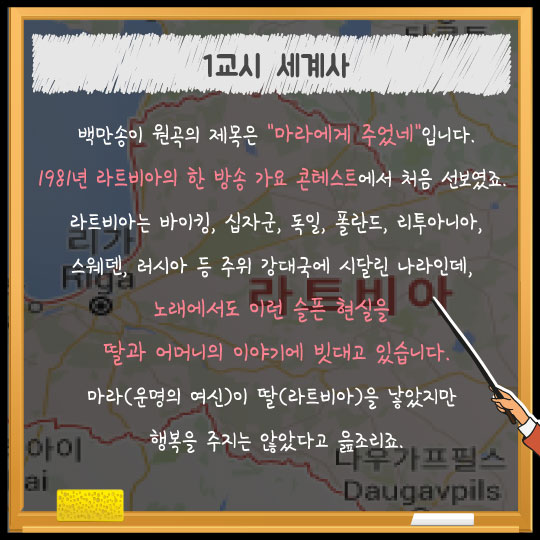 1교시 세계사
백만송이 원곡의 제목은 "마라에게 주었네"입니다.
1981년 라트비아의 한 방송 가요 콘테스트에서 처음 선보였죠.
라트비아는 바이킹, 십자군, 독일, 폴란드, 리투아니아,
리가
Riga
스웨덴, 러시아 등 주위 강대국에 시달린 나라인데,
라트비아
노래에서도 이런 슬픈 현실을
딸과 어머니의 이야기에 빗대고 있습니다.
마라(운명의 여신)이 딸(라트비아)을 낳았지만
행복을 주지는 않았다고 읊조리죠.
아이
ai
다우가프필스
Daugavpils